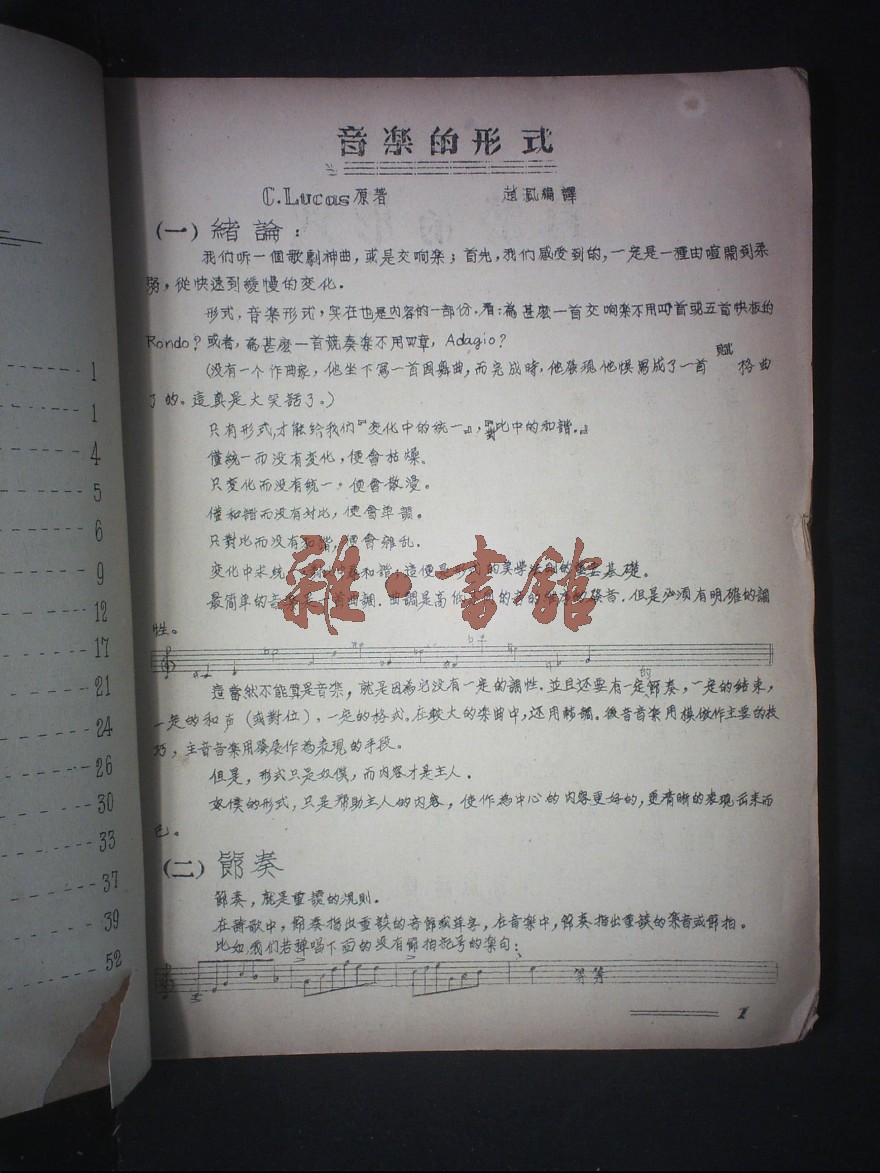 音楽的形式
C.Lucas原著 趙渢編譯
(一)緒論:
我们听一個歌劇神曲,或是交响楽;首先,我们感受到的,一定是一種由喧鬧到柔
弱,從快速到緩慢的变化.
形式,音楽形式,实在也是內容的一部份.看:為甚麽一首交响楽不用四首或五首快板的
Rondo?或者,為甚麽一首競奏楽不用四章,Adagio?
(没有一个作曲家,他坐下寫一首圆舞曲,而完成時,他發現他悞寫成了一首賦格曲
了的。這真是大笑話了。)
只有形式,才能給我们『变化中的統一』,『對比中的和諧.』
僅統一而没有变化,便會枯燥。
只变化而没有統一,便會散漫。
僅和諧而没有对比,便會单調。
只對比而没有和諧,便會雜乱.
变化中求統一 和諧;這便是形式的美學法則的 基礎。
最简单的音楽是一首曲調.曲調是高低 的 樂音.但是必須有明確的調
性。
這當然不能算是音楽,就是因為它没有一定的調性.並且还要有一定的節奏,一定的结束,
一定的和声(或對位),一定的格式。在較大的楽曲中,还用轉調。複音音楽用模倣作主要的技
巧,主音音楽用發展作為表現的手段。
但是,形式只是奴僕,而内容才是主人.
奴僕的形式,只是帮助主人的内容,使作為中心的内容更好的,更清晰的表現出來而
已。
(二)節奏
節奏,就是重讀的规則.
在詩歌中,節奏指出重讀的音節或单字,在音楽中,節奏指出重讀的楽音或節拍.
比如,我们若試唱下面的没有節拍記号的楽句:
等等
1
1
1
4
5
6
9
12
17
21
24
26
30
33
37
39
52
雜·書館